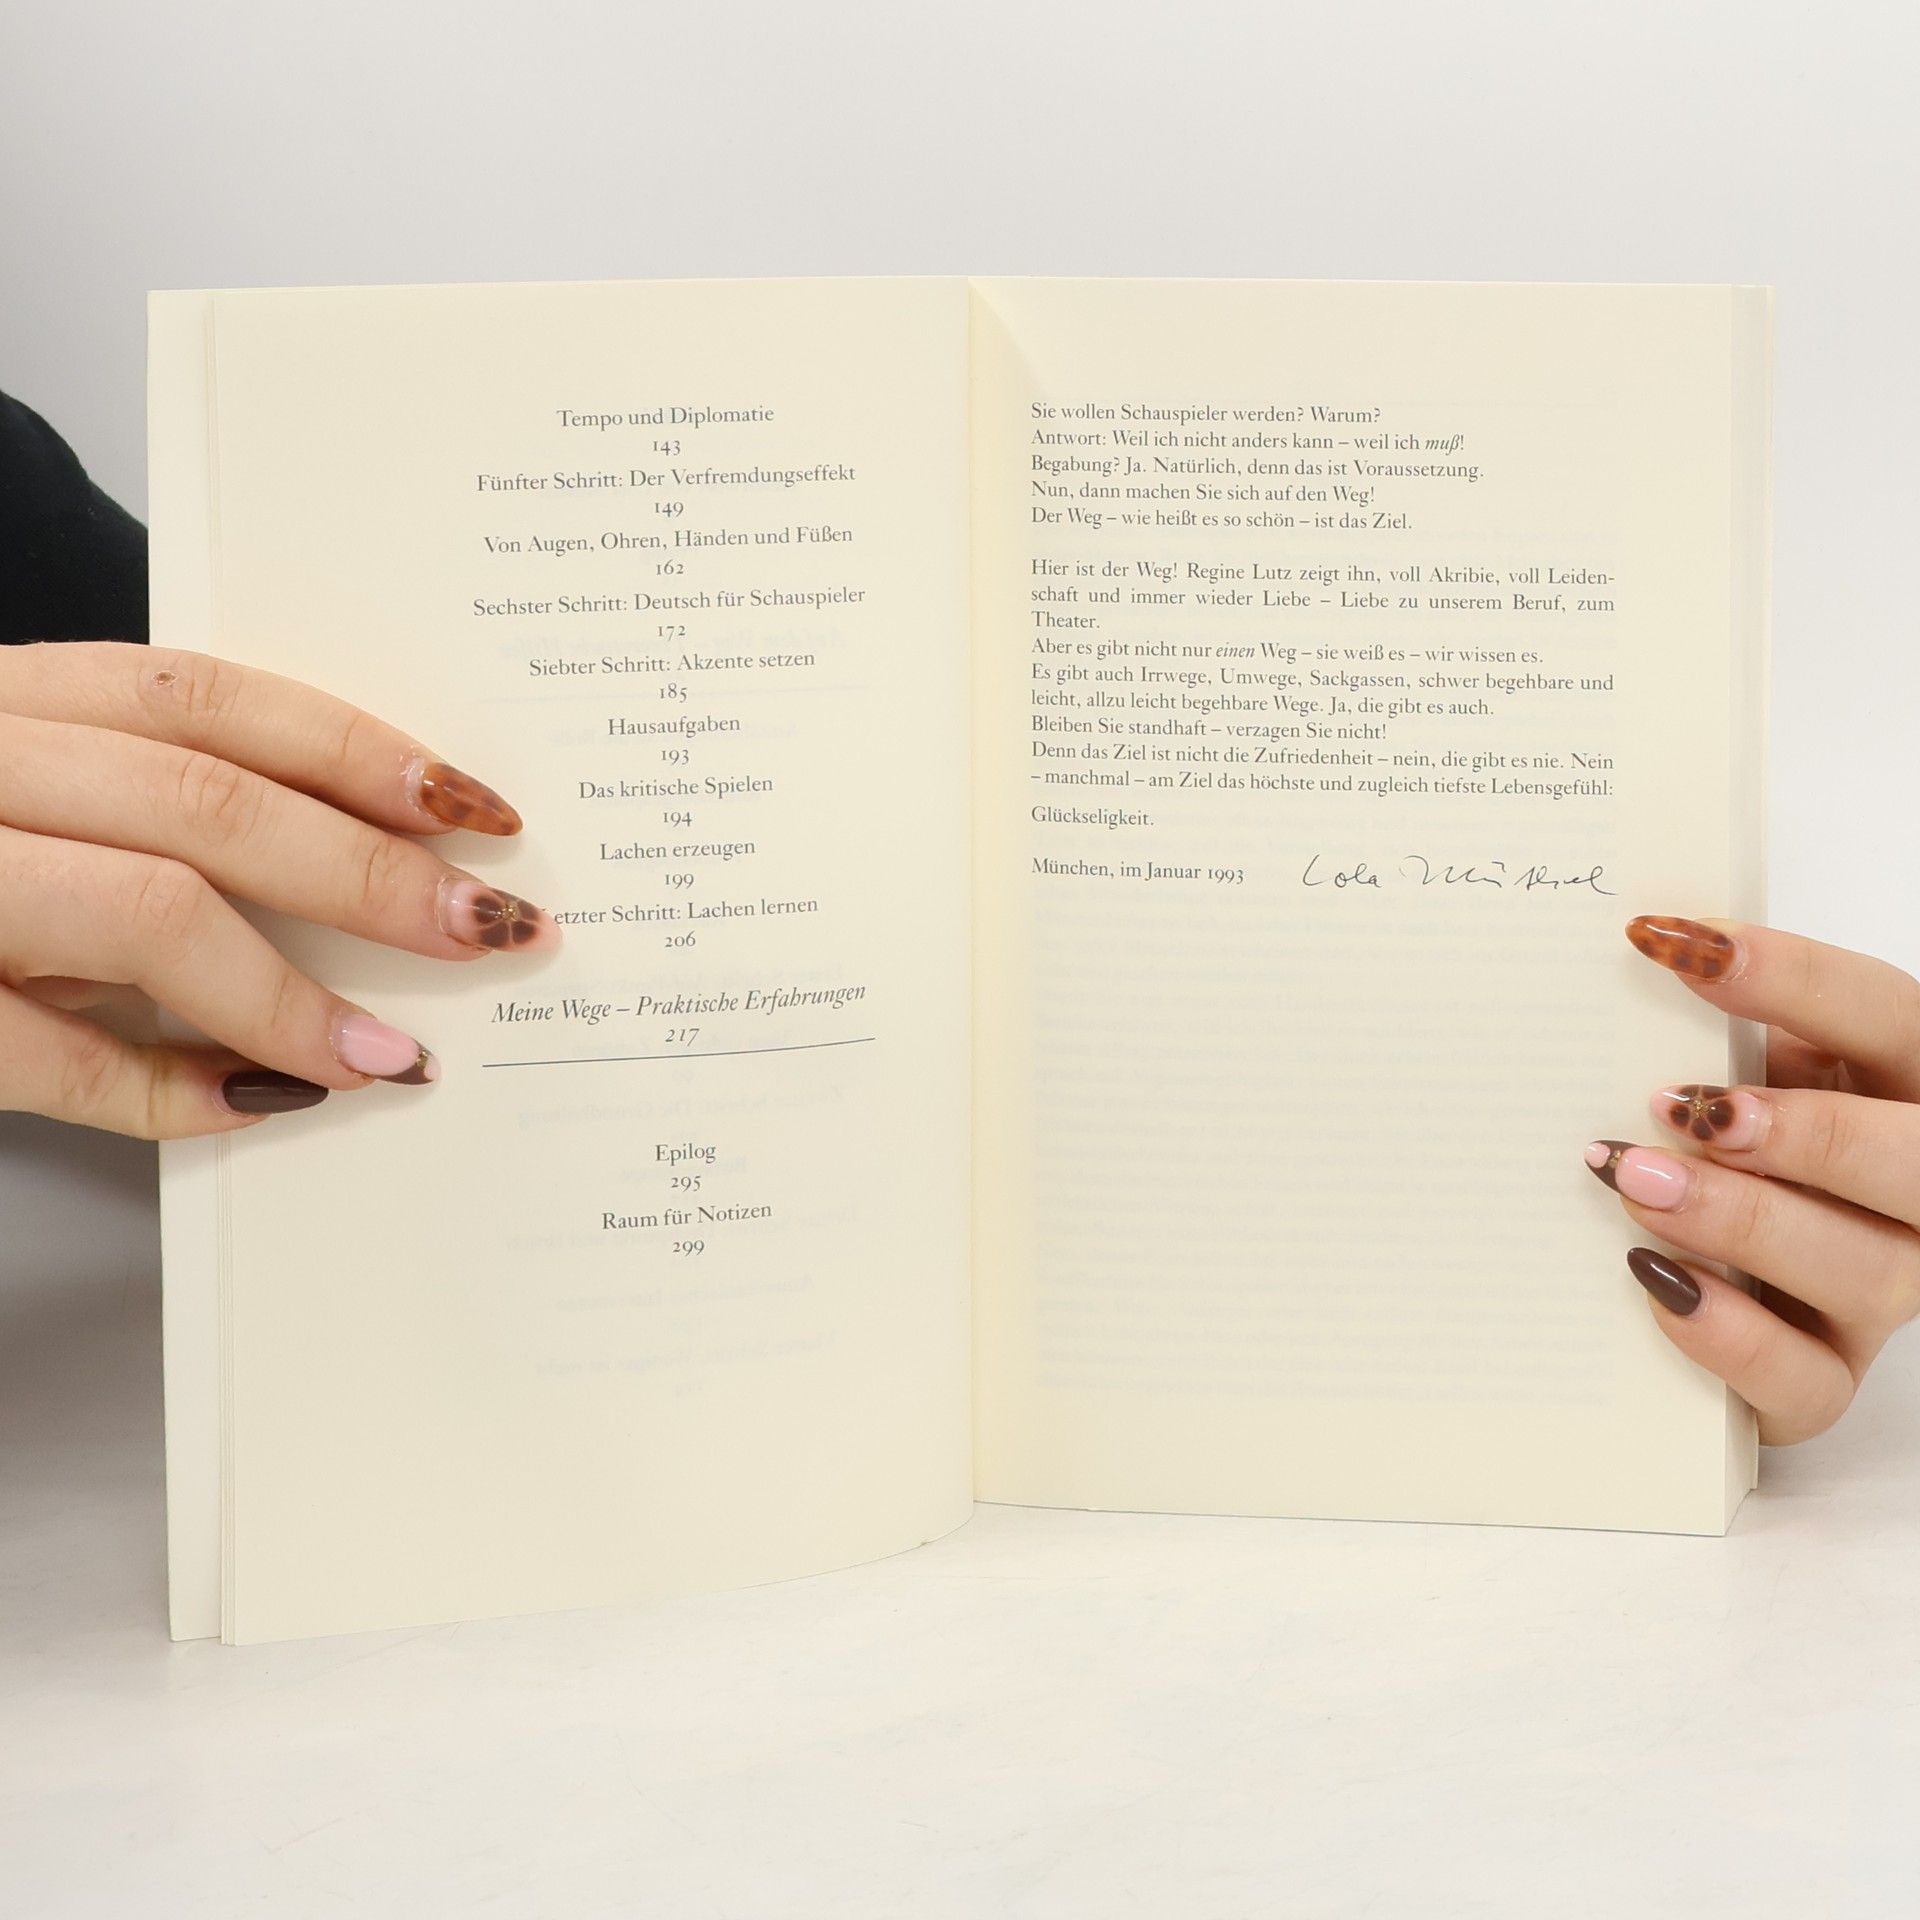 Tempo und Diplomatie
143
Fünfter Schritt: Der Verfremdungseffekt
149
Von Augen, Ohren, Händen und Füßen
162
Sechster Schritt: Deutsch für Schauspieler
172
Siebter Schritt: Akzente setzen
185
Hausaufgaben
193
Das kritische Spielen
194
Lachen erzeugen
199
Letzter Schritt: Lachen lernen
206
Meine Wege – Praktische Erfahrungen
217
Epilog
295
Raum für Notizen
299
Sie wollen Schauspieler werden? Warum?
Antwort: Weil ich nicht anders kann – weil ich muß!
Begabung? Ja. Natürlich, denn das ist Voraussetzung.
Nun, dann machen Sie sich auf den Weg!
Der Weg – wie heißt es so schön – ist das Ziel.
Hier ist der Weg! Regine Lutz zeigt ihn, voll Akribie, voll Leiden-
schaft und immer wieder Liebe – Liebe zu unserem Beruf, zum
Theater.
Aber es gibt nicht nur einen Weg – sie weiß es – wir wissen es.
Es gibt auch Irrwege, Umwege, Sackgassen, schwer begehbare und
leicht, allzu leicht begehbare Wege. Ja, die gibt es auch.
Bleiben Sie standhaft – verzagen Sie nicht!
Denn das Ziel ist nicht die Zufriedenheit – nein, die gibt es nie. Nein
– manchmal – am Ziel das höchste und zugleich tiefste Lebensgefühl:
Glückseligkeit.
München, im Januar 1993 Lola Müthel